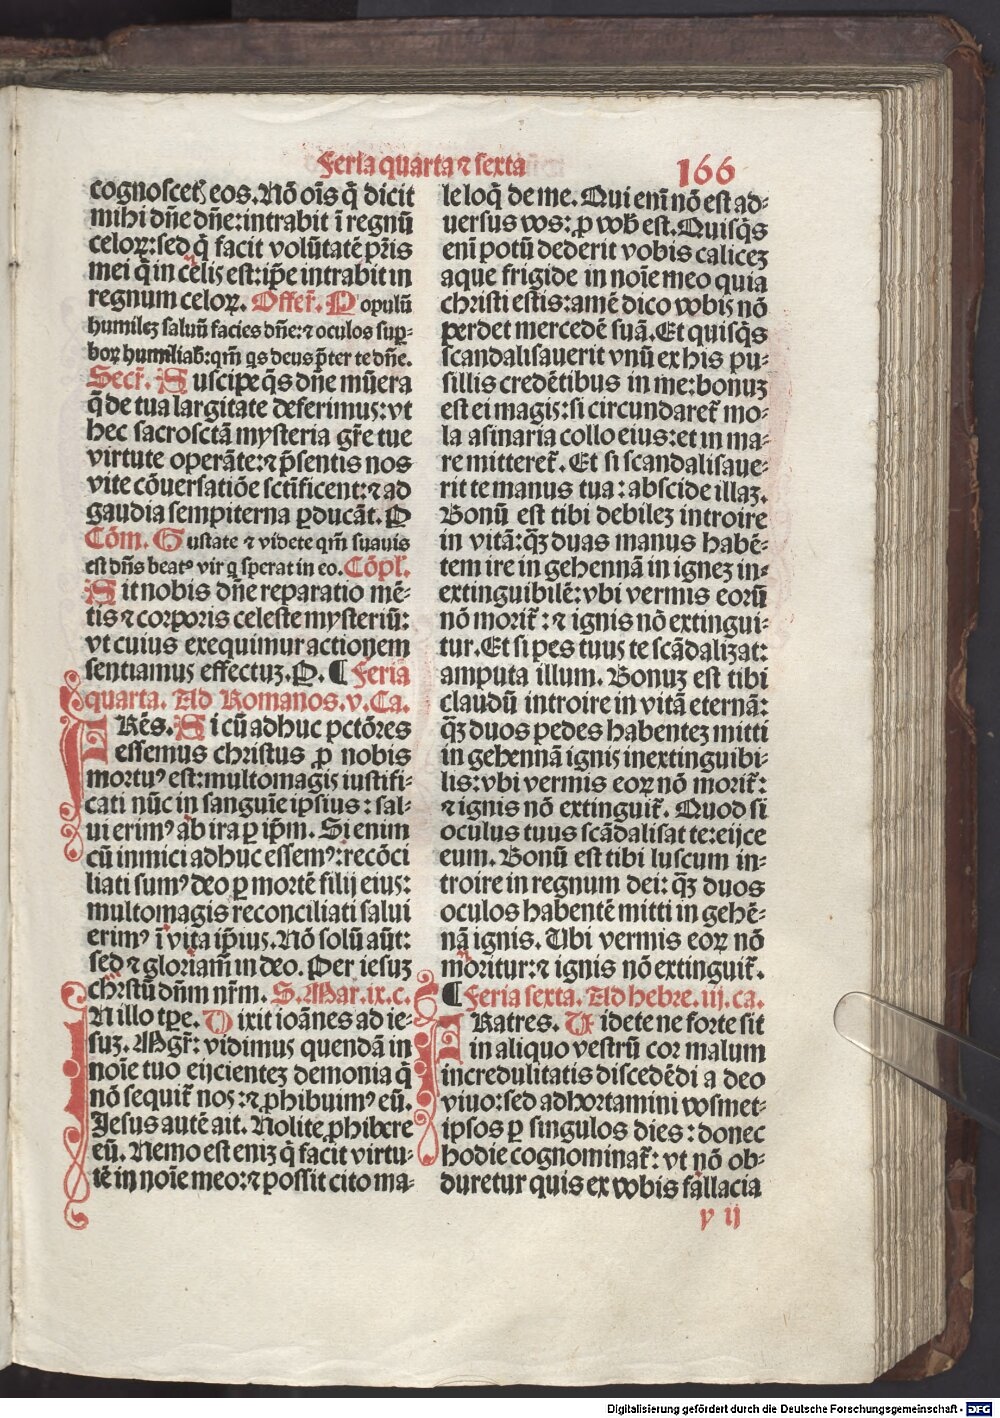 Feria quarta ⁊ sexta
166
cognoscetꝭ eos. Nō oīs q̄ dicit
mihi dn̄e dn̄e: intrabit ī regnū
celoꝝ: sed q̄ facit volūtatē pr̄is
mei q̄ in celis est: ip̄e intrabit in
regnum celoꝝ. Offer̄. Populū
humilez saluū facies dn̄e: ⁊ oculos sup̲-
boꝝ humiliab̄: qm̄ qs deus p̄ter te dn̄e.
Secr̄. Suscipe q̄s dn̄e mūera
q̄ de tua largitate deferimus: vt
hec sacrosctā mysteria gr̄e tue
virtute operāte: ⁊ p̄sentis nos
vite cōuersatiōe sctīficent: ⁊ ad
gaudia sempiterna ꝑducāt. P
Cōm. Gustate ⁊ videte qm̄ suauis
est dn̄s beatꝰ vir q sperat in eo. Cōpl̄.
Sit nobis dn̄e reparatio mē-
tis ⁊ corporis celeste mysteriū:
vt cuius exequimur actionem
sentiamus effectuz. P. ¶ Feria
quarta. Ad Romanos. v. Ca.
FRēs. Si cū adhuc pctōres
essemus christus ꝓ nobis
mortuꝰ est: multomagis iustifi-
cati nūc in sanguīe ipsius: sal-
ui erimꝰ ab ira ꝑ ip̄m. Si enim
cū inmici adhuc essemꝰ: recōci
liati sumꝰ deo ꝑ mortē filij eius:
multomagis reconciliati salui
erimꝰ ī vita ip̄ius. Nō solū aūt:
sed ⁊ gloriam̄ in deo. Per iesuz
christū dn̄m nr̄m. S. Mar. ix. c.
IN illo tp̄e. Dixit ioānes ad ie-
suz. Mgr̄: vidimus quendā in
noīe tuo eijcientez demonia q̄
nō sequit̄ nos: ⁊ ꝓhibuimꝰ eū.
Jesus autē ait. Nolite ꝓhibere
eū. Nemo est eniz q̄ facit virtu-
tē in noīe meo: ⁊ possit cito ma-
le loq̄ de me. Qui enī nō est ad-
versus vos: ꝓ vob̄ est. Quisq̄s
enī potū dederit vobis calicez
aque frigide in noīe meo quia
christi estis: amē dico vobis nō
perdet mercedē suā. Et quisq̄s
scandalisauerit vnū ex his pu-
sillis credētibus in me: bonuz
est ei magis: si circundaret̄ mo-
la asinaria collo eius: et in ma-
re mitteret̄. Et si scandalisaue-
rit te manus tua: abscide illaz.
Bonū est tibi debilez introire
in vitā: qz̄ duas manus habē-
tem ire in gehennā in ignez in-
extinguibilē: vbi vermis eorū
nō morit̄: ⁊ ignis nō extingui-
tur. Et si pes tuus te scādalizat:
amputa illum. Bonuz est tibi
claudū introire in vitā eternā:
qz̄ duos pedes habentez mitti
in gehennā ignis inextinguibi-
lis: vbi vermis eoꝝ nō morit̄:
⁊ ignis nō extinguit̄. Quod si
oculus tuus scādalisat te: eijce
eum. Bonū est tibi luscum in-
troire in regnum dei: qz̄ duos
oculos habentē mitti in gehē-
nā ignis. Ubi vermis eoꝝ nō
moritur: ⁊ ignis nō extinguit̄.
¶ Feria sexta. Ad hebre. iij. ca.
FRatres. Videte ne forte sit
in aliquo vestrū cor malum
incredulitatis discedēdi a deo
viuo: sed adhortamini vosmet-
ipsos ꝑ singulos dies: donec
hodie cognominat̄: vt nō ob-
duretur quis ex vobis fallacia
y ij
Digitalisierung gefördert durch die Deutsche Forschungsgemeinschaft - DFG